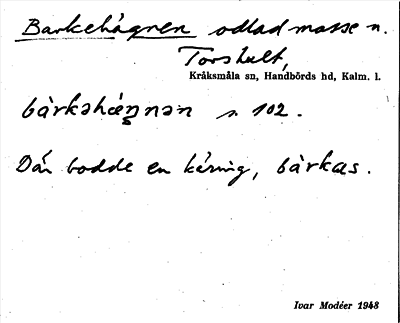 Barkehágnen odlad mosse n.
Torshult,
Kråksmåla sn, Handbörds hd, Kalm. l.
bàrkəháŋnən s. 102.
Där bodde en käring, bàrkas.
Ivar Modéer 1948